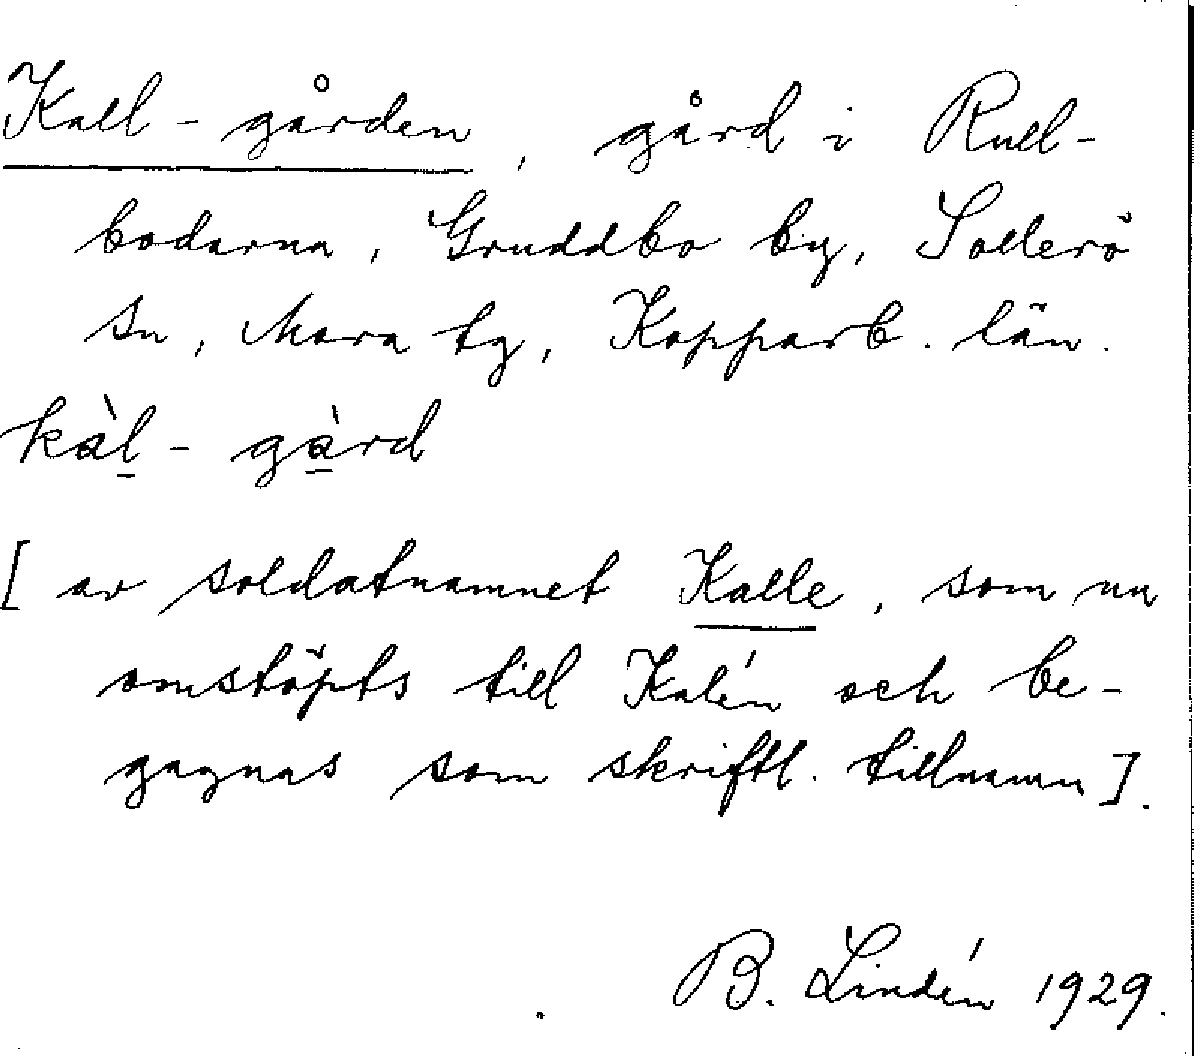 Kall-gården, gård i Rull-
bodarna, Gruddbo by, Sollerö
sn, Mora tg, Kopparb. län.
kàl-gàrd
[av soldatnamnet Kalle, som nu
omstöpts till Kalén och be-
gagnas som skriftl. tillnamn].
B. Lindén 1929.